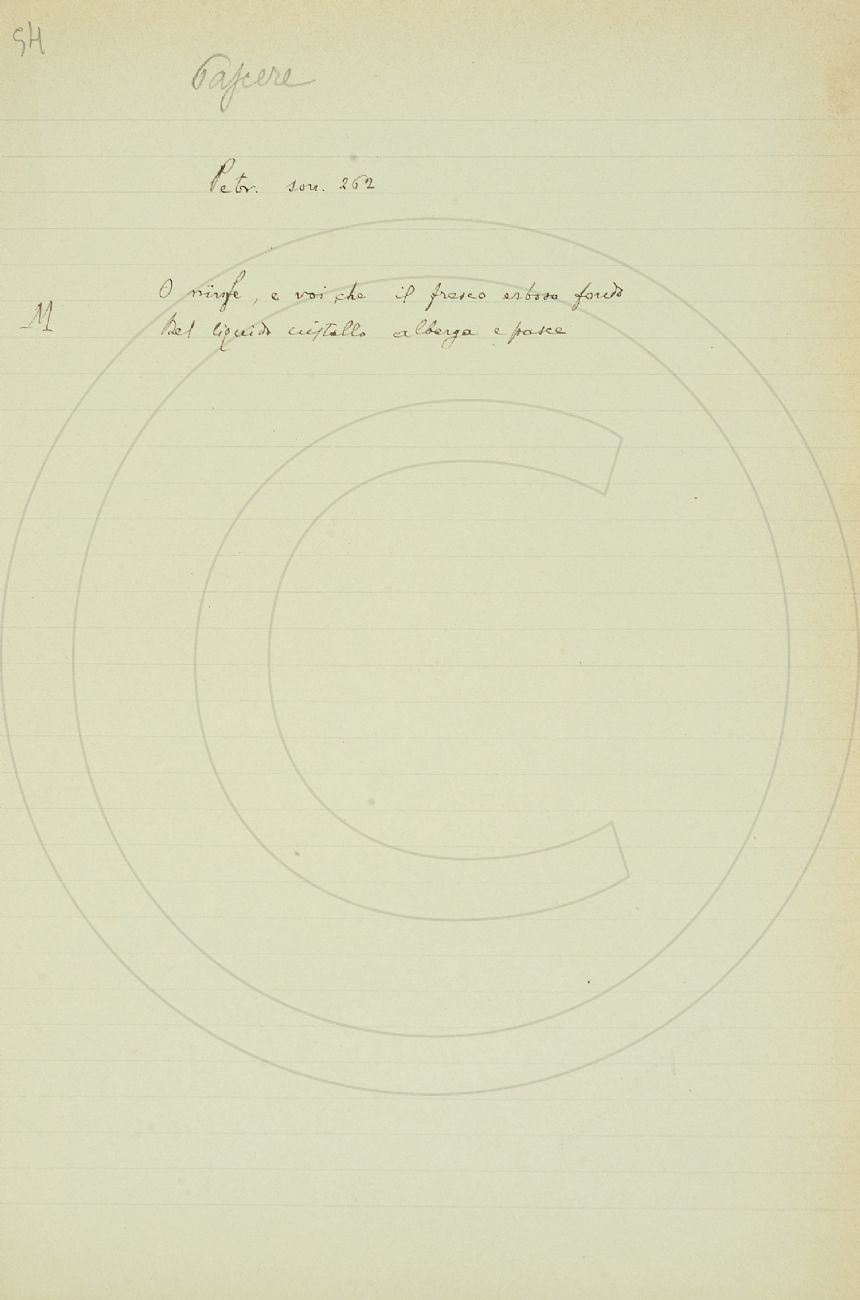 54
Pascere
Petr. son. 262
O ninfe, e voi che il fresco erboso fondo
M
Del liquido cristallo alberga e pasce